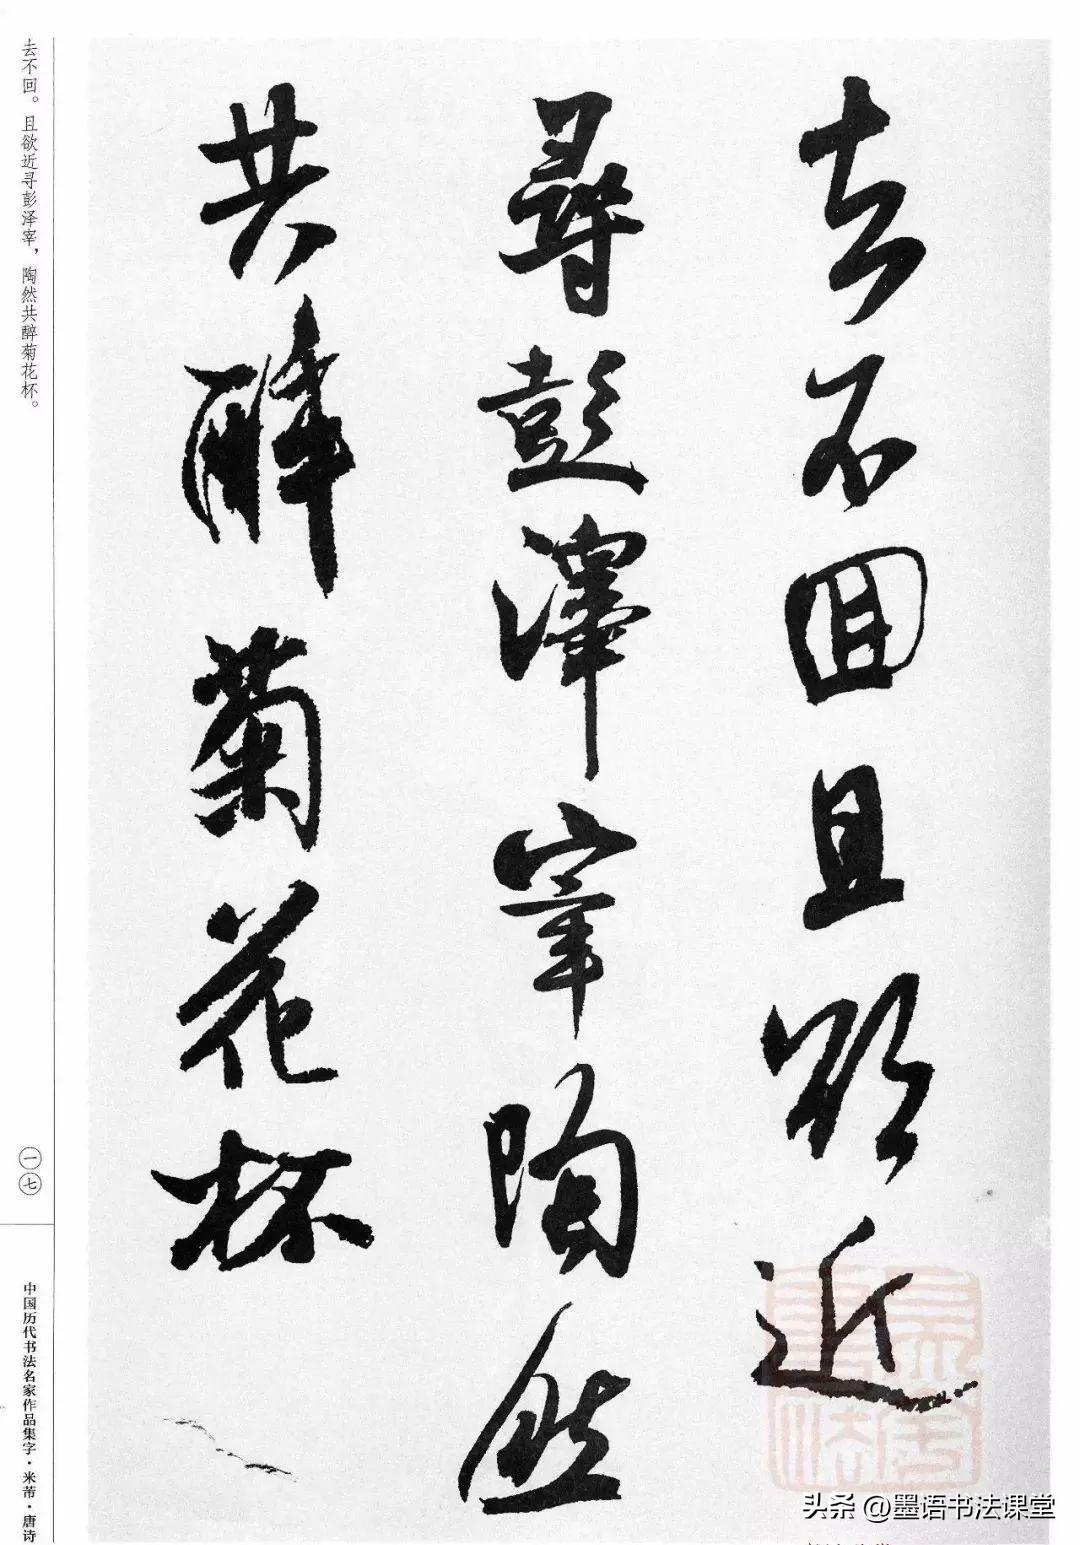 去不回且欲近
尋彭澤宰陶然
共醉菊花杯
去不回。且欲近寻彭泽宰，陶然共醉菊花杯。
一七
中国历代书法名家作品集字·米芾·唐诗
头条 @墨语书法课堂